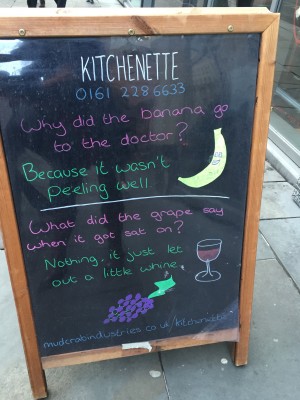 KITCHENETTE
0161 228 6633
Why did the banana go
to the doctor?
Because it wasn't
peeling well.
What did the grape say
when it got sat on?
Nothing, it just let
out a little whine.
mudcrabindustries.co.uk/kitchenette